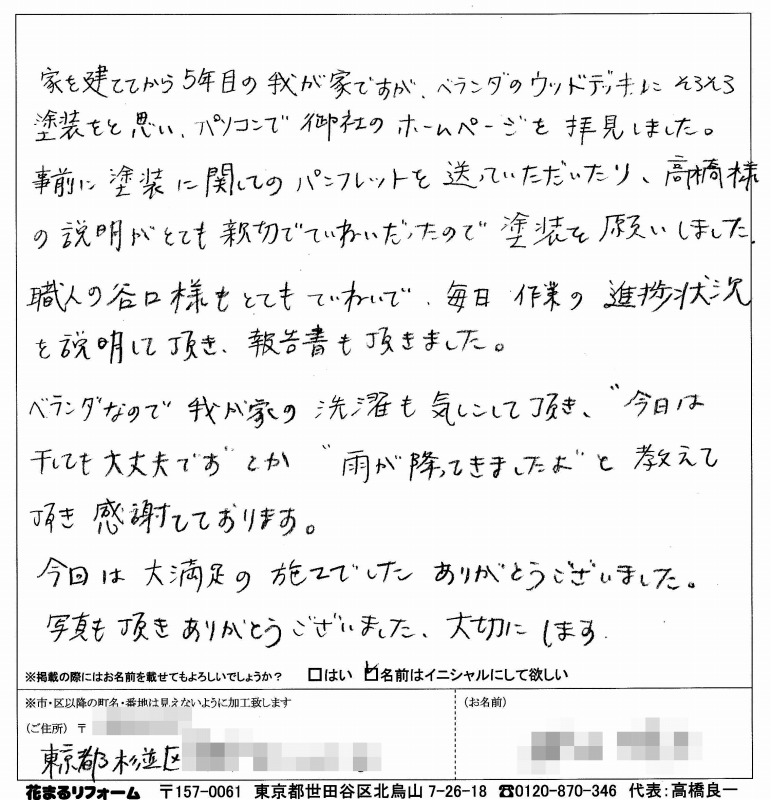 家を建ててから5年目の我が家ですが、ベランダのウッドデッキにそろそろ
塗装をと思い、パソコンで御社のホームページを拝見しました。
事前に塗装に関してのパンフレットを送っていただいたり、高橋様
の説明がとても親切でていねいだったので塗装を願いしました。
職人の谷口様もとてもていねいで、毎日作業の進捗状況
を説明して頂き、報告書も頂きました。
ベランダなので我が家の洗濯も気にして頂き、"今日は
干しても大丈夫です"とか"雨が降ってきましたよ"と教えて
頂き感謝しております。
今回は大満足の施工でした ありがとうございました。
写真も頂きありがとうございました、大切にします.
※掲載の際にはお名前を載せてもよろしいでしょうか? □はい ☑名前はイニシャルにして欲しい
※市・区以降の町名・番地は見えないように加工致します (お名前)
(ご住所) 〒
東京都杉並区
花まるリフォーム 〒157-0061 東京都世田谷区北烏山7-26-18 ☎0120-870-346 代表:高橋良一